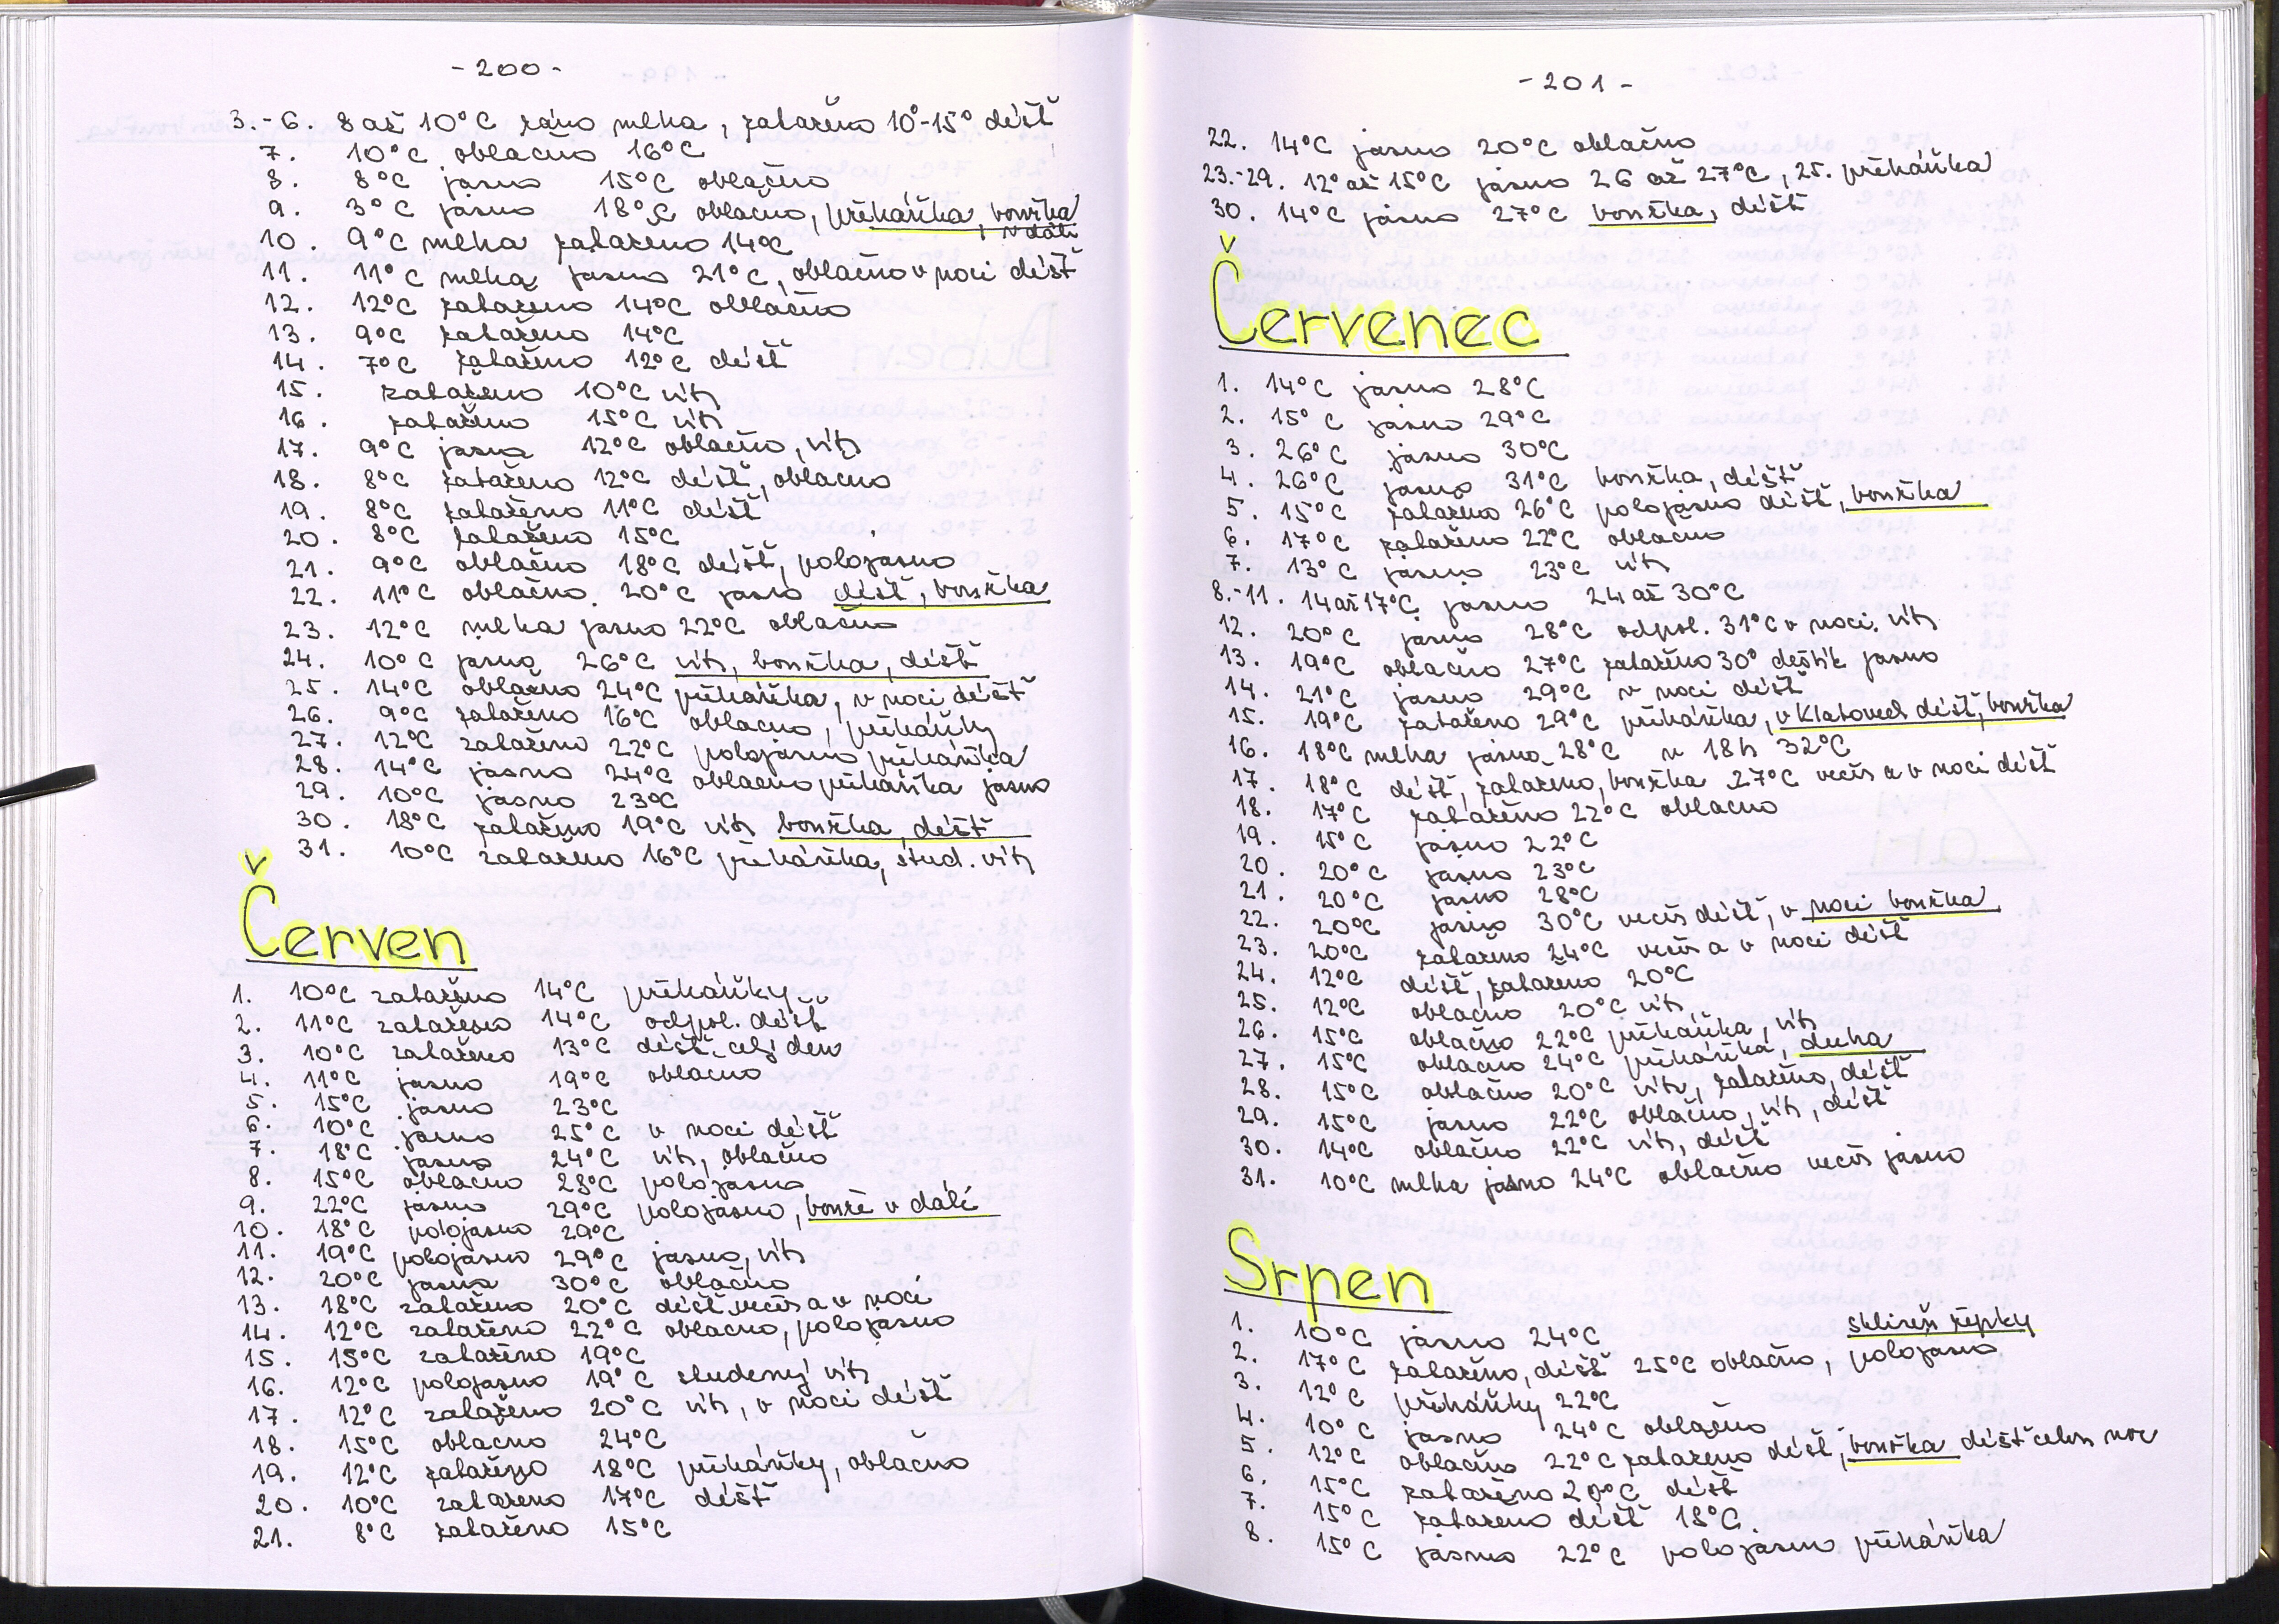 - 200 -
3.-6. 8 až 10°C ráno mlha, zataženo 10°-15° déšť
7. 10°C oblačno 16°C
8. 8°C jasno 15°C oblačno
9. 3°C jasno 18°C oblačno, přeháňka, bouřka
v dáli
10. 9°C mlha zataženo 14°C
11. 11°C mlha, jasno 21°C, oblačno v noci déšť
12. 12°C zataženo 14°C oblačno
13. 9°C zataženo 14°C
14. 7°C zataženo 12°C déšť
15. zataženo 10°C vítr
16. zataženo 15°C vítr
17. 9°C jasno 12°C oblačno, vítr
18. 8°C zataženo 12°C déšť, oblačno
19. 8°C zataženo 11°C déšť
20. 8°C zataženo 15°C
21. 9°C oblačno 18°C déšť, polojasno
22. 11°C oblačno 20°C jasno déšť, bouřka
23. 12°C mlha jasno 22°C oblačno
24. 10°C jasno 26°C vítr, bouřka, déšť
25. 14°C oblačno 24°C přeháňka, v noci déšť
26. 9°C zataženo 16°C oblačno, přeháňky
27. 12°C zataženo 22°C polojasno přeháňka
28. 14°C jasno 24°C oblačno přeháňka jasno
29. 10°C jasno 23°C
30. 18°C zataženo 19°C vítr bouřka, déšť
31. 10°C zataženo 16°C přeháňka, stud. vítr
Červen
1. 10°C zataženo 14°C přeháňky
2. 11°C zataženo 14°C odpol. déšť
3. 10°C zataženo 13°C déšť celý den
4. 11°C jasno 19°C oblačno
5. 15°C jasno 23°C
6. 10°C jasno 25°C v noci déšť
7. 18°C jasno 24°C vítr, oblačno
8. 15°C oblačno 23°C polojasno
9. 22°C jasno 29°C polojasno, bouře v dáli
10. 18°C polojasno 29°C
11. 19°C polojasno 29°C jasno, vítr
12. 20°C jasno 30°C oblačno
13. 18°C zataženo 20°C déšť večer a v noci
14. 12°C zataženo 22°C oblačno, polojasno
15. 15°C zataženo 19°C
16. 12°C polojasno 19°C studený vítr
17. 12°C zataženo 20°C vítr, v noci déšť
18. 15°C oblačno 24°C
19. 12°C zataženo 18°C přeháňky, oblačno
20. 10°C zataženo 17°C déšť
21. 8°C zataženo 15°C
- 201 -
22. 14°C jasno 20°C oblačno
23.-29. 12° až 15°C jasno 26 až 27°C, 25. přeháňka
30. 14°C jasno 27°C bouřka, déšť
Červenec
1. 14°C jasno 28°C
2. 15°C jasno 29°C
3. 26°C jasno 30°C
4. 26°C jasno 31°C bouřka, déšť
5. 15°C zataženo 26°C polojasno déšť, bouřka
6. 17°C zataženo 22°C oblačno
7. 13°C jasno 23°C vítr
8.-11. 14 až 17°C jasno 24 až 30°C
12. 20°C jasno 28°C odpol. 31°C v noci vítr
13. 19°C oblačno 27°C zataženo 30° deštík jasno
14. 21°C jasno 29°C v noci déšť
15. 19°C zataženo 29°C přeháňka, v Klatovech déšť, bouřka
16. 18°C mlha jasno 28°C v 18h 32°C
17. 18°C déšť, zataženo, bouřka 27°C večer a v noci déšť
18. 17°C zataženo 22°C oblačno
19. 15°C jasno 22°C
20. 20°C jasno 23°C
21. 20°C jasno 28°C
22. 20°C jasno 30°C večer déšť, v noci bouřka
23. 20°C zataženo 24°C večer a v noci déšť
24. 12°C déšť, zataženo 20°C
25. 12°C oblačno 20°C vítr
26. 15°C oblačno 22°C přeháňka, vítr
27. 15°C oblačno 24°C přeháňka, duha
28. 15°C oblačno 20°C vítr, zataženo, déšť
29. 15°C jasno 22°C oblačno, vítr, déšť
30. 14°C oblačno 22°C vítr, déšť
31. 10°C mlha jasno 24°C oblačno večer jasno
Srpen
1. 10°C jasno 24°C sklizeň řepky
2. 17°C zataženo, déšť 25°C oblačno, polojasno
3. 12°C přeháňky 22°C
4. 10°C jasno 24°C oblačno
5. 12°C oblačno 22°C zataženo déšť, bouřka déšť celou noc
6. 15°C zataženo 20°C déšť
7. 15°C zataženo déšť 18°C.
8. 15°C jasno 22°C polojasno přeháňka